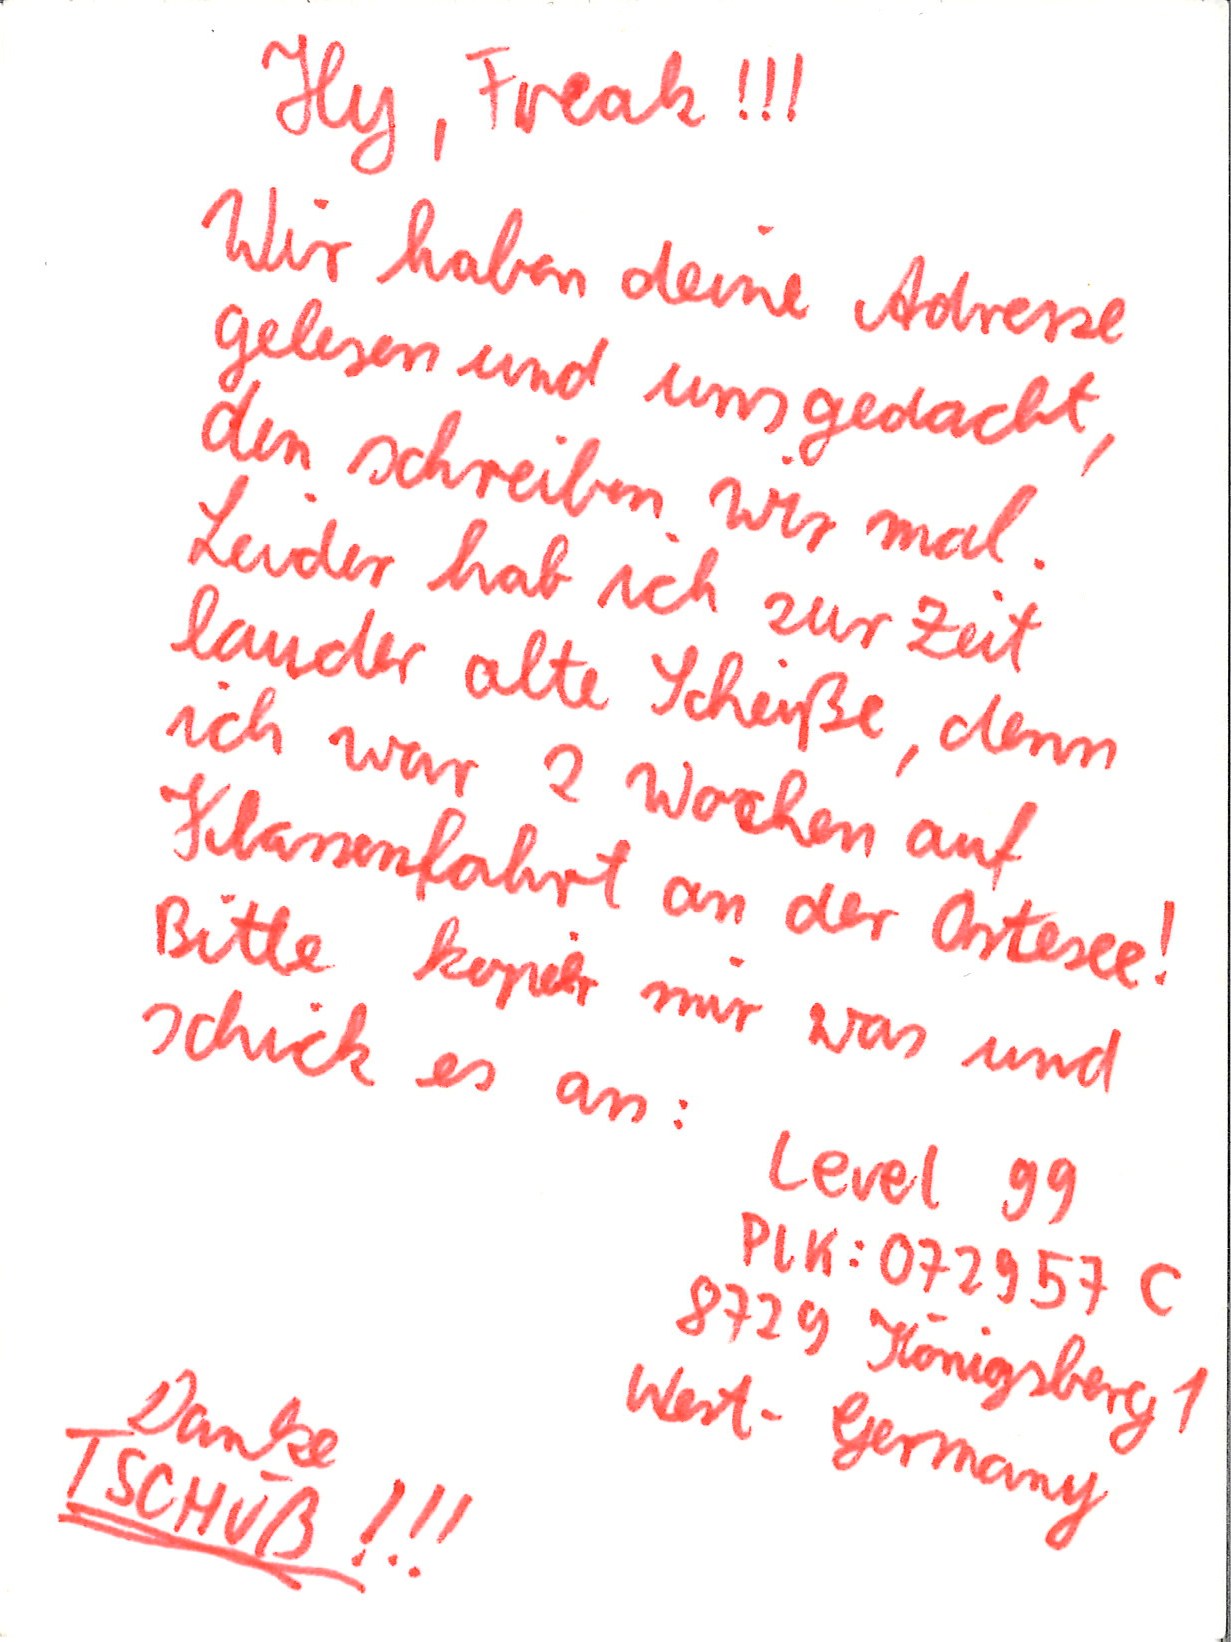 Hy, Freak !!!
Wir haben deine Adresse
gelesen und uns gedacht,
den schreiben wir mal.
Leider hab ich zur Zeit
lauder alte Scheiße, denn
ich war 2 Wochen auf
Klassenfahrt an der Ostesee!
Bitte kopier mir was und
schick es an:
Level 99
PLK: 072957 C
8729 Königsberg 1
West-Germany
Danke
TSCHÜß !!!